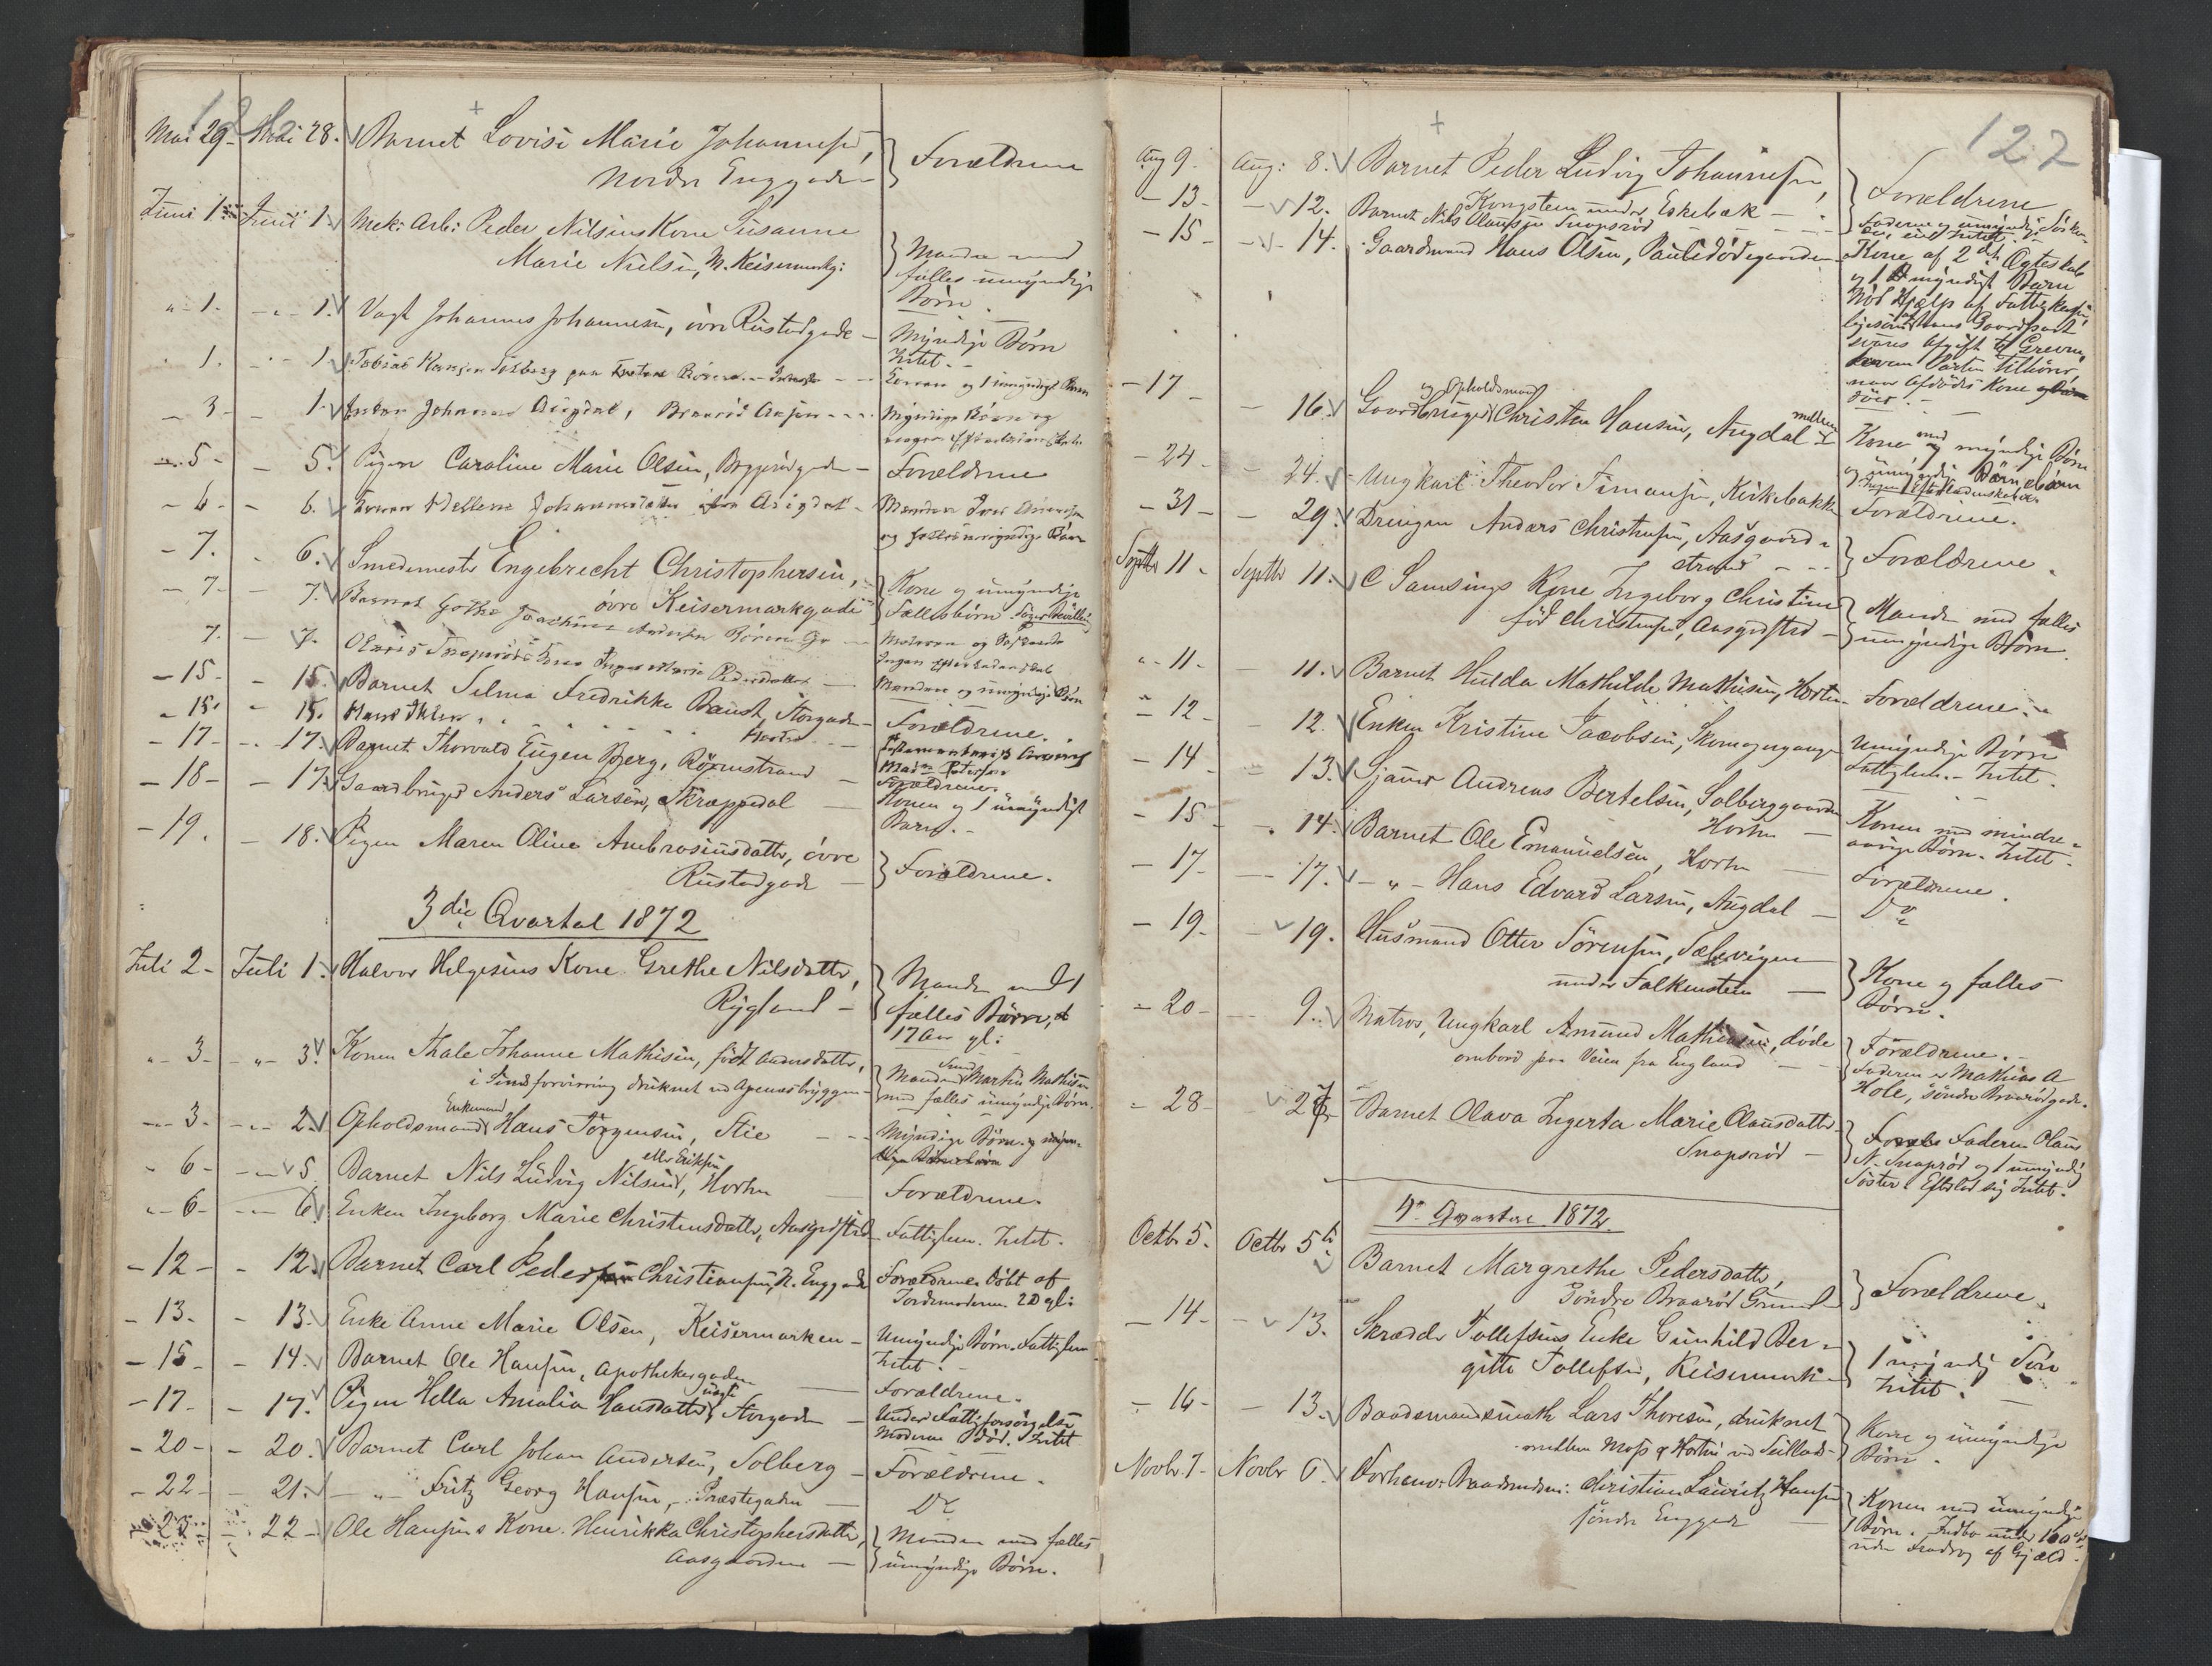 Mai 29 - Mai 28. Barnet Lovise Marie Johannesen, Forældrene
Nordre Enggaden
Juni 1 Juni 1. Mek: Arb: Peder Nilsens Kone Susanne
Marie Nielsen, N. Keisermarkg: Manden med
fælles umyndige
Børn.
" - 1. - " - 1. Vagt Johannes Johannesen, øvre Rustadgade - Myndige Børn
Intet. -
1. - 1. Tobias Hansen
Konen og 1 umyndigt Barn
- 3 - - 1. Enken Johanne Augdal, Myndige Børn og
ingen Efterladenskab
- 5 - - 5. Pigen Caroline Marie Olsen, - Forældrene
- 6 - - 6. Konen Hellene Johannesdatter Augdal - Manden
og fælles umyndige Børn
- 7. - 6. Smedemester Engebrecht Christophersen,
øvre Keisermarkgade Kone og umyndige
Fællesbørn
- 7 - - 7. Barnet
Moderen og
Ingen Efterladenskab
7. - 7. Olaus Snapsrøds Kone Inger Marie Pedersdatter - Manden og umyndige Børn
- 15 - - 15. Barnet Selma Fredrikke Bausk, Storgaden - Forældrene.
- 15. - 15. Hans
Horten
Madm Petersen
- 17 - - 17. Barnet Thorvald Eugen Bjerg, Rørnstrand - Forældrene.
- 18 - - 17. Gaardbruger Anders Larsen, Skrappedal - Konen og 1 umyndigt
Barn. -
- 19. - 18. Pigen Maren Oline Ambrosiusdatter, øvre
Rustadgade - Forældrene.
3die Qvartal 1872
Juli 2 - Juli 1. Halvor Helgesens Kone Grethe Nilsdatter,
Rygland - Manden med 1
fælles Barn,
17 Aar gl:
" - 3 - " - 3. Konen Thale Johanne Mathisen, født Andersdatter,
i Sindsforvirring druknet ved Apenæsbryggen - Manden Smed Martin Mathisen
med fælles umyndige Børn.
- 3. - 2. Opholdsmand Enkemand Hans Jørgensen, Stie - - Myndige Børn og umyn-
dige Børnebørn
- 6 - - 5. Barnet Nils Ludvig Nilsen, eller Eriksen Horten - Forældrene.
- 6 - - 6. Enken Ingeborg Marie Christensdatter, Aasgrdstrd - Fattiglem. Intet.
- 12 - - 12. Barnet Carl Peder Christiansen, N. Enggade Forældrene. Døbt af
Jordemoderen. 2D gl:
- 13. - 13. Enke Anne Marie Olsen, Keisermarken - Umyndige Børn. Fattiglem
Intet. -
- 15 - - 14. Barnet Ole Hansen, Apothekergaden - Forældrene.
- 17 - - 17. Pigen Hella Amalia Hansdatter, uægte Storgaden - Under Fattigforsørgelse
Moderen død. Intet
- 20 - - 20. Barnet Carl Johan Andersen, Solberg - Forældrene.
- 22 - - 21. - " - Fritz Georg Hansen, Præstegaden - Do
- 25 - - 22 - Ole Hansens Kone Henrikka Christophersdatter,
Aasgaarden - Manden med fælles
umyndige Børn.
122
Aug 9. Aug: 8. Barnet Peder Ludvig Johannesen,
Kongsteen under Eskebæk - Forældrene
- 13 - - 12. Barnet Nils Olaussen Snapsrød - - - Faderen og umyndig Søsken-
de, eier Intet.
- 15 - - 14. Gaardmand Hans Olsen, Kone af 2det Ægteskab
og 1 umyndigt Barn
Nød Hjælp af Fattigkassen,
ligesom af hans Gaardpart
svares Afgift til Greven,
hvem Parten tilhører,
naar Afdødes Kone
døer. -
- 17 - 16. Gaardbruger og Opholdsmand Christen Hansen, Augdal mellem - Kone med og myndige Børn
og umyndige Børnebørn
Ingen Efterladenskaber
- 24 - - 24. Ungkarl Theodor Simonsen, Kirkebakken Forældrene.
- 31 - - 29. Drengen Anders Christensen, Aasgaard-
strand - - Forældrene.
Septbr 11 - Septbr 11. C Samsings Kone Ingeborg Christine
født Christensen, Aasgrdstrd - Manden med fælles
umyndige Børn.
" - 11 - - 11. Barnet Hulda Mathilde Mathisen, Horten - Forældrene. -
- 12 - - 12. Enken Kristine Jacobsen, Skomagergangen Umyndige Børn
Fattiglem. - Intet.
- 14 - 13. Sjauer Andreas Bertelsen, Solberggaarden
Horten - Konen med mindre-
aarige Børn. Intet.
- 15 - - 14. Barnet Ole Emanuelsen, Horten - Forældrene.
- 17 - - 17. - " - Hans Edvard Larsen, Augdal - Do
- 19 - - 19. Husmand Otter Sørensen, Sælevigen
under Falkensten - Kone og fælles
Børn.
- 20 - - 9. Matros, Ungkarl Amund Mathiesen, døde
ombord paa Veien fra England - Forældrene. -
Faderen er Mathias A
Hole, søndre Braarødgade.
- 28 - - 27 Barnet Olava Ingerta Marie Olausdatter
Snapsrød - Faderen Olaus
N. Snapsrød og 1 umyndig
Søster. Efterlod sig Intet.
4de Qvartal 1872
Octbr 5. Octbr 5. Barnet Margrethe Pedersdatter,
Søndre Braarød Grund - Forældrene.
- 14 - - 13. Skrædder Tollefsens Enke Gunhild Ber-
gitte Tollefsen, Keisermark - 1 myndig Søn
Intet.
- 16 - - 13. Baadsmandsmath Lars Thoresen, druknet
mellem Moss & Horten ved Seillads - Kone og umyndige
Børn.
Novbr. 7 - Novbr 6. Forhenv: Baadsmdm: Christian Lauritz Hansen
søndre Enggade - Konen med umyndige
Børn. Indbo under 100 Sp
uden Fradrag af Gjæld.